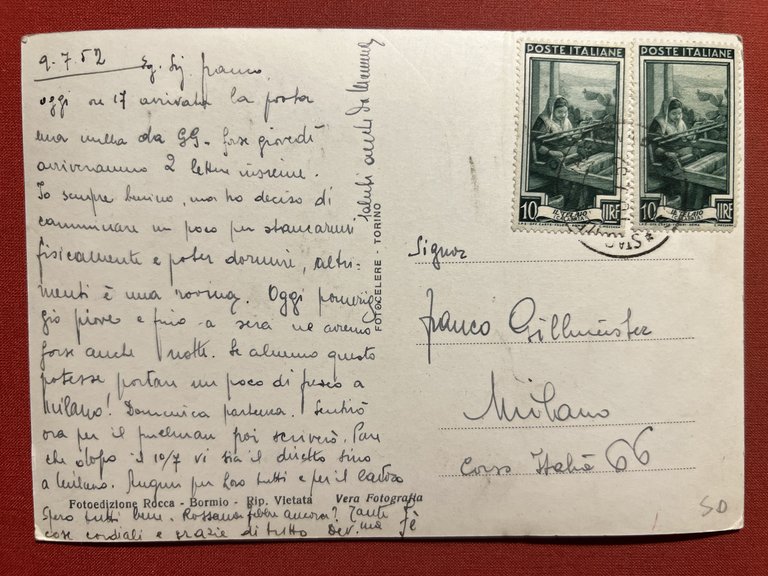 9.7.52
Eg. Sig. Franco,
oggi ore 17 arrivata la posta
ma nulla da GG. forse giovedì
arriveranno 2 lettere insieme.
Io sempre benino, ma ho deciso di
camminare un poco per stancarmi
fisicamente e poter dormire, altri-
menti è una rovina. Oggi pomerig-
gio piove e fino a sera ne avremo
forse anche notte. Se almeno questo
potesse portare un poco di fresco a
Milano! Domenica partenza. Sentirò
ora per il pullman poi scriverò. Pare
che dopo il 10/7 vi sia il diretto sino
a Milano. Auguri per Loro tutti e per il
Spero tutti bene. Rossana febbre ancora? Tante
cose cordiali e grazie di tutto Dev.ma Fè
Saluti anche da Mamma
FOTOCELERE - TORINO
Fotoedizione Rocca - Bormio - Rip. Vietata Vera Fotografia
POSTE ITALIANE
IL TELAIO
CALABRIA
10 LIRE
POSTE ITALIANE
IL TELAIO
CALABRIA
10 LIRE
Signor
Franco Gillmeister
Milano
Corso Italia 66
SD